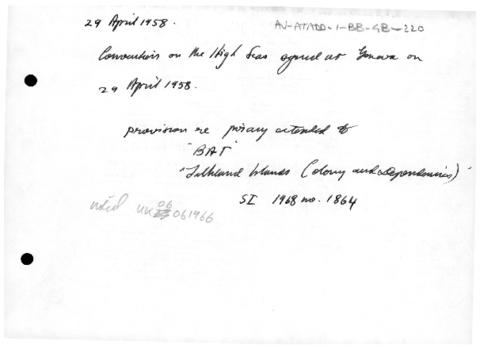 29 April 1958.
AJ-ATADD-1-BB-GB-220
Convention on the High Seas signed at Geneva on
29 April 1958.
provision re piracy extended to
"BAT"
"Falkland Islands (Colony and dependencies)"
SI 1968 no. 1864
UK 06 061966